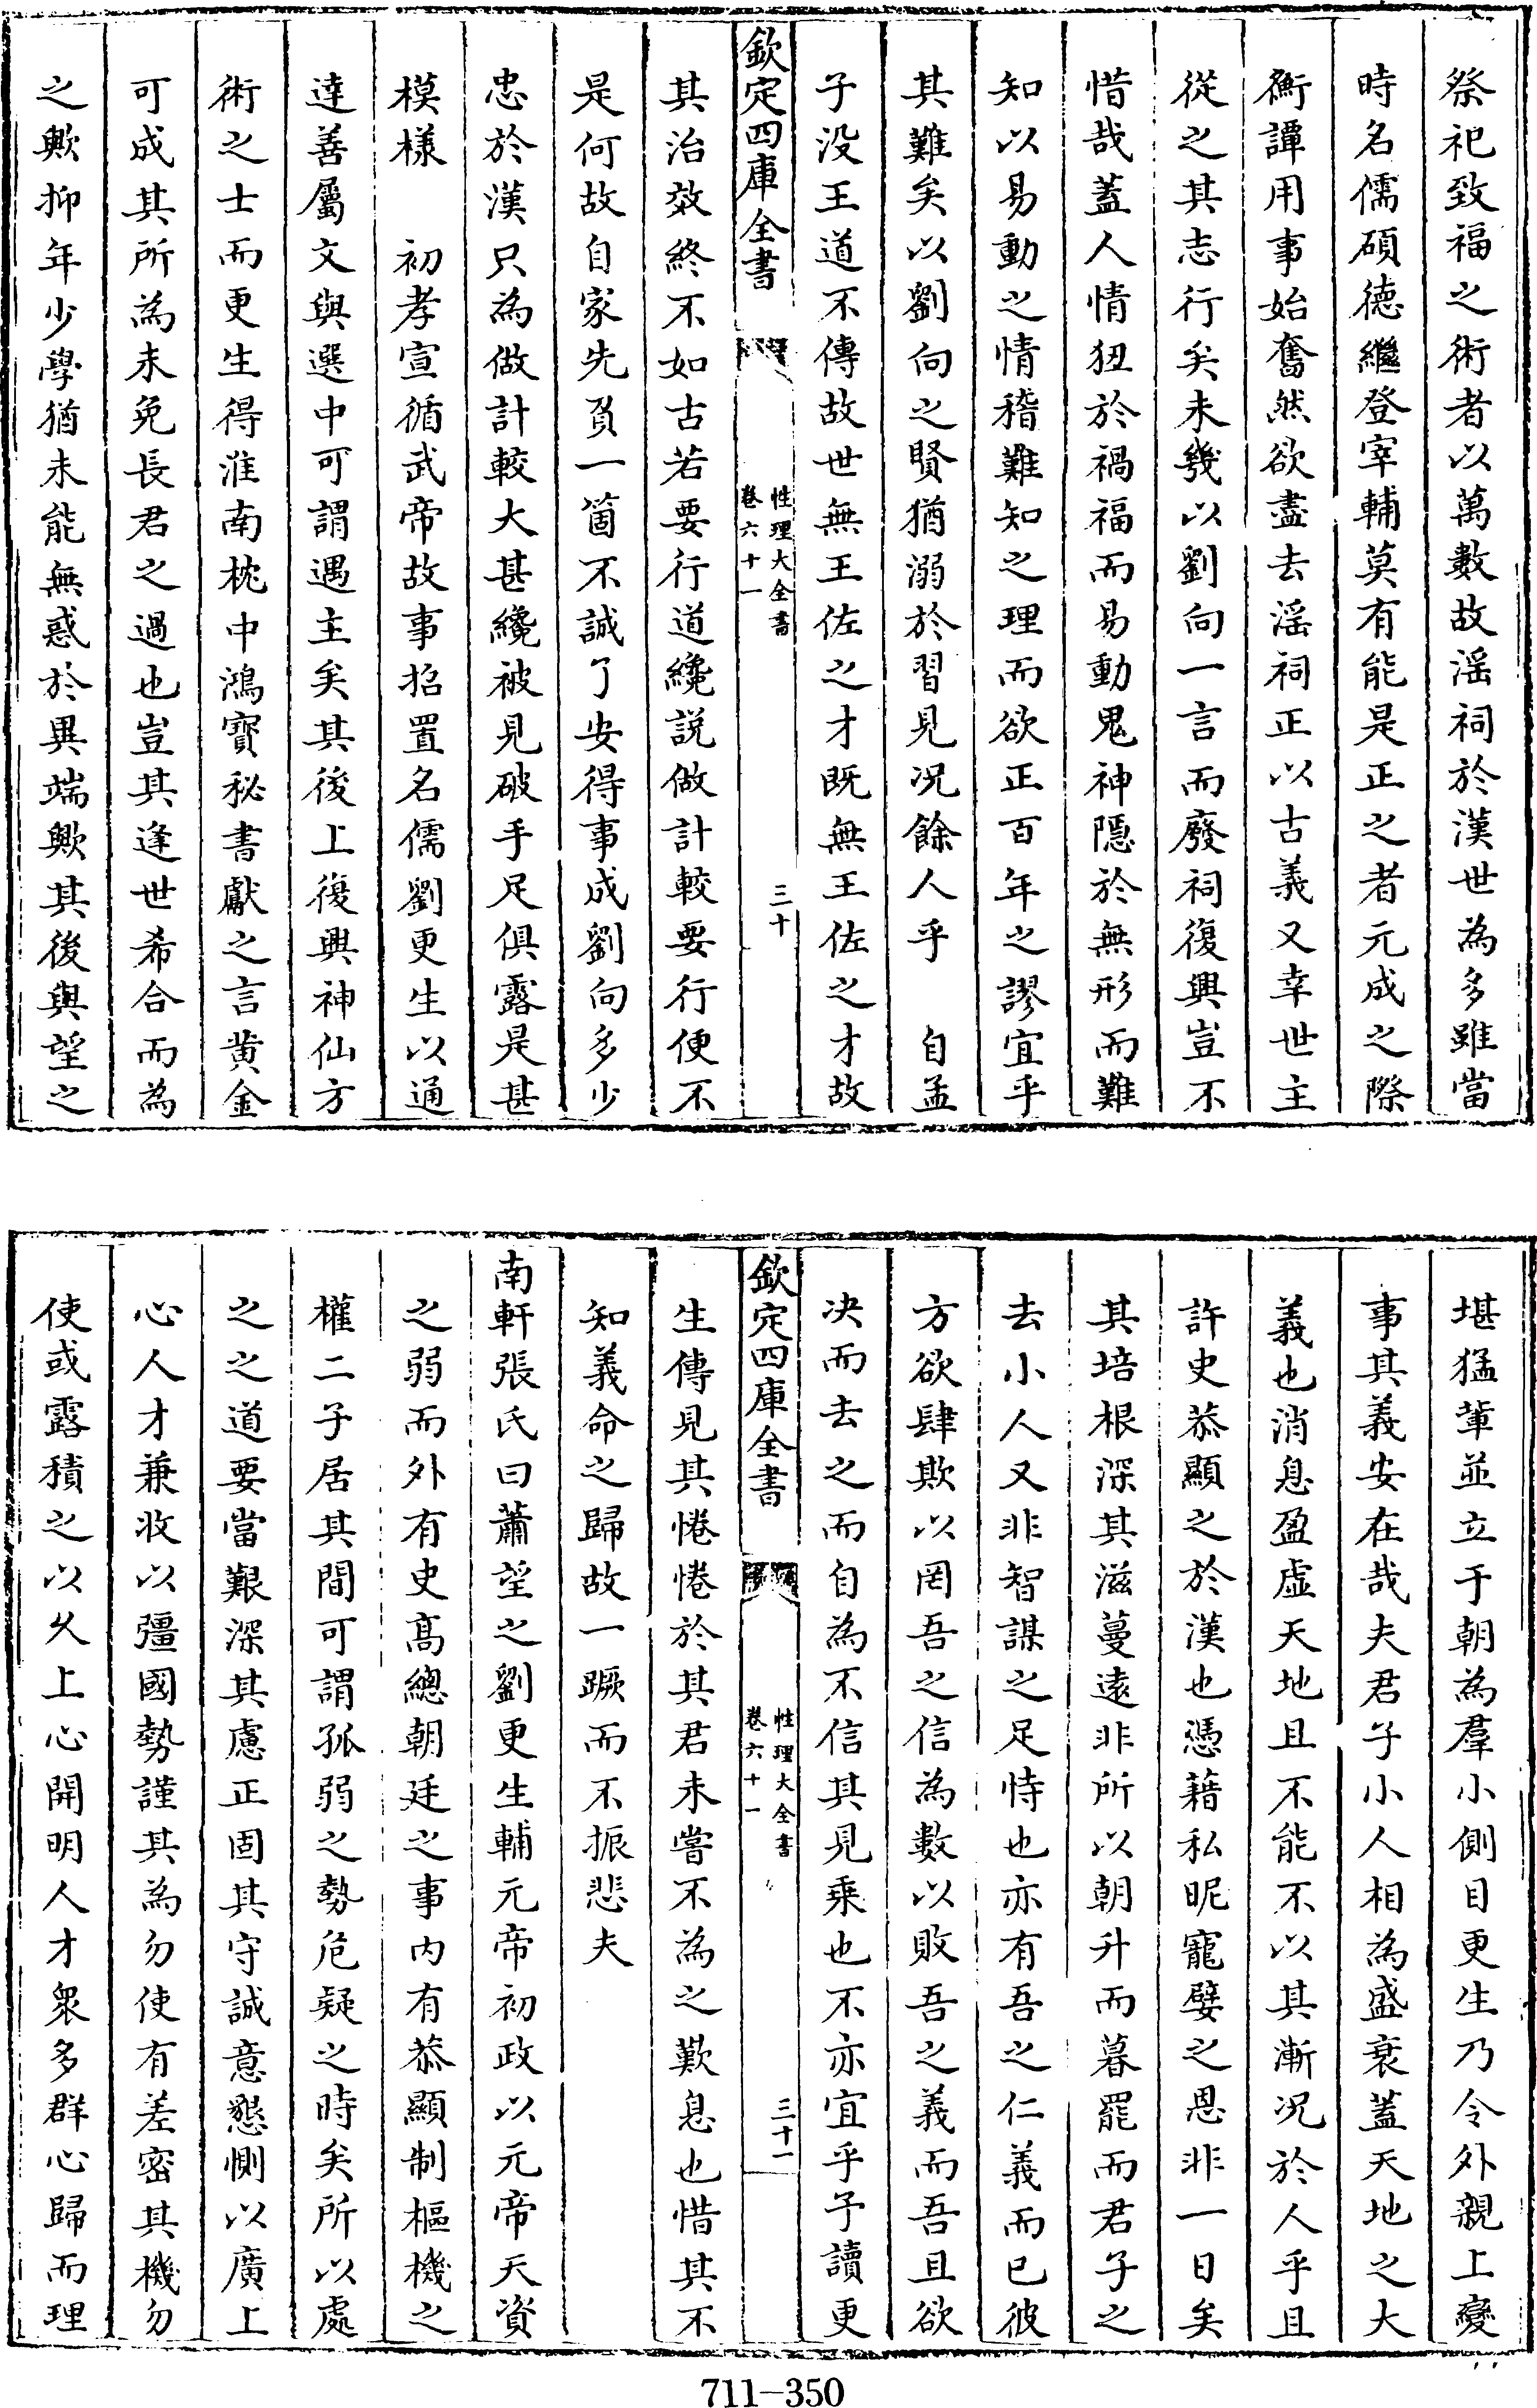 祭祀致福之術者以萬數故滛祠於漢世為多雖當
時名儒碩德繼登宰輔莫有能是正之者元成之際
衡譚用事始奮然欲盡去滛祠正以古義又幸世主
從之其志行矣未幾以劉向一言而廢祠復興豈不
惜哉蓋人情狃於禍福而易動鬼神隱於無形而難
知以易動之情稽難知之理而欲正百年之謬宜乎
其難矣以劉向之賢猶溺於習見况餘人乎　自孟
子没王道不傳故世無王佐之才既無王佐之才故
欽定四庫全書
性理大全書
卷六十一
三十
其治效終不如古若要行道纔説做計較要行便不
是何故自家先負一箇不誠了安得事成劉向多少
忠於漢只為做計較大甚纔被見破手足俱露是甚
模様　初孝宣循武帝故事招置名儒劉更生以通
達善屬文與選中可謂遇主矣其後上復興神仙方
術之士而更生得淮南枕中鴻寳秘書獻之言黄金
可成其所為未免長君之過也豈其逢世希合而為
之歟抑年少學猶未能無惑於異端歟其後與望之
堪猛軰並立于朝為羣小側目更生乃令外親上變
事其義安在哉夫君子小人相為盛衰蓋天地之大
義也消息盈虚天地且不能不以其漸况於人乎且
許史恭顯之於漢也憑藉私昵寵嬖之恩非一日矣
其培根深其滋蔓遠非所以朝升而暮罷而君子之
去小人又非智謀之足恃也亦有吾之仁義而已彼
方欲肆欺以罔吾之信為數以敗吾之義而吾且欲
决而去之而自為不信其見乘也不亦宜乎予讀更
欽定四庫全書
性理大全書
卷六十一
三十一
生傳見其惓惓於其君未嘗不為之歎息也惜其不
知義命之歸故一蹶而不振悲夫
南軒張氏曰蕭望之劉更生輔元帝初政以元帝天資
之弱而外有史髙總朝廷之事内有恭顯制樞機之
權二子居其間可謂孤弱之勢危疑之時矣所以處
之之道要當艱深其慮正固其守誠意懇惻以廣上
心人才兼收以彊國勢謹其為勿使有差密其機勿
使或露積之以久上心開明人才衆多群心歸而理
711-350